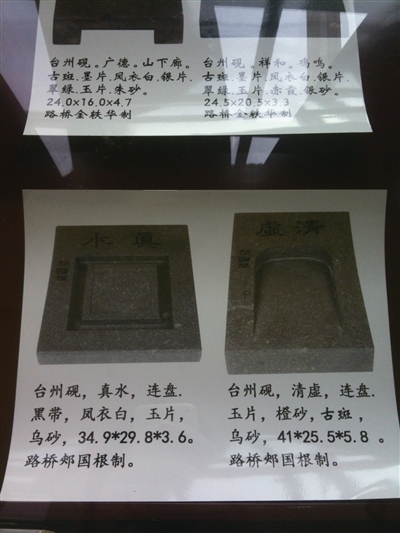 台州砚。广德。山下廊。
古斑.墨片.凤衣白.银片.
翠绿.玉片.朱砂.
24.0x16.0x4.7
路桥金轶华制
台州砚。祥和。鸡鸣。
古斑.墨片.凤衣白.银片.
翠绿.玉片.赤霞.银砂.
24.5x20.5x3.3
路桥金轶华制
水真
台州砚，真水，连盘.
黑带，凤衣白，玉片，
乌砂，34.9*29.8*3.6。
路桥郏国根制。
虚清
台州砚，清虚，连盘.
玉片，橙砂，古斑，
乌砂，41*25.5*5.8 。
路桥郏国根制。